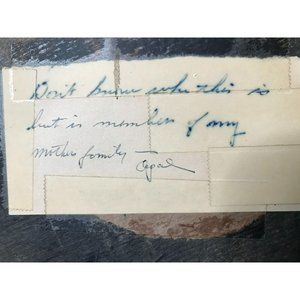 Don't know who this is
but is member of my
mother family